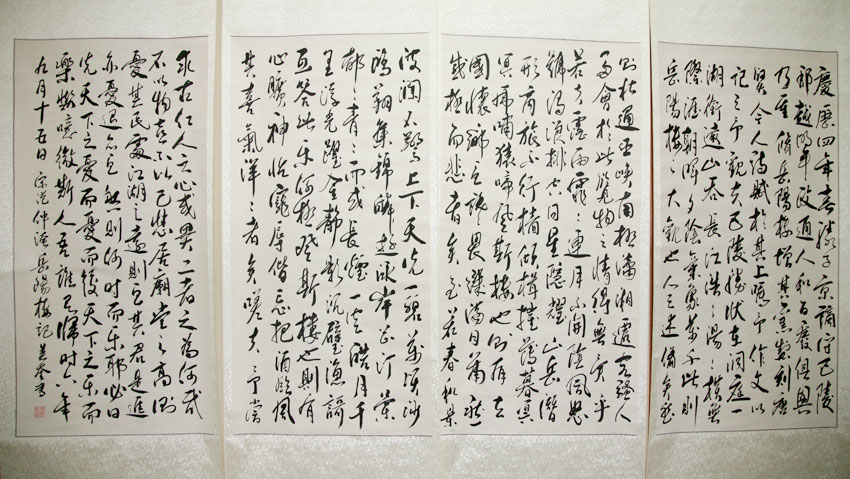 慶歷四年春滕子京謫守巴陵
郡越明年政通人和百廢俱興
乃重脩岳陽樓增其舊制刻唐
賢今人詩賦於其上屬予作文以
記之予觀夫巴陵勝狀在洞庭一
湖銜遠山吞長江浩〻湯〻橫無
際涯朝暉夕陰氣象萬千此則
岳陽樓之大觀也人之述備矣然
則北通巫峽南極瀟湘遷客騷人
多會於此覽物之情得無異乎
若夫霪雨霏〻連月不開陰風怒
號濁浪排空日星隱耀山岳潛
形商旅不行檣傾楫摧薄暮冥
冥虎嘯猿啼登斯樓也則有去
國懷鄉憂讒畏譏滿目蕭然
感極而悲者矣至若春和景
波瀾不驚上下天光一碧萬頃沙
鷗翔集錦鱗游泳岸芷汀蘭
郁〻青〻而或長煙一空皓月千
里浮光躍金靜影沉璧漁謌
互答此樂何極登斯樓也則有
心曠神怡寵辱偕忘把酒臨風
其喜氣洋〻者矣嗟夫予嘗
求古仁人之心或異二者之為何哉
不以物喜不以己悲居廟堂之高則
憂其民處江湖之遠則憂其君是進
亦憂退亦憂然則何時而樂耶必曰
先天下之憂而憂後天下之樂而
樂歟噫微斯人吾誰與歸時六年
九月十五日 宋范仲淹岳陽樓記 書